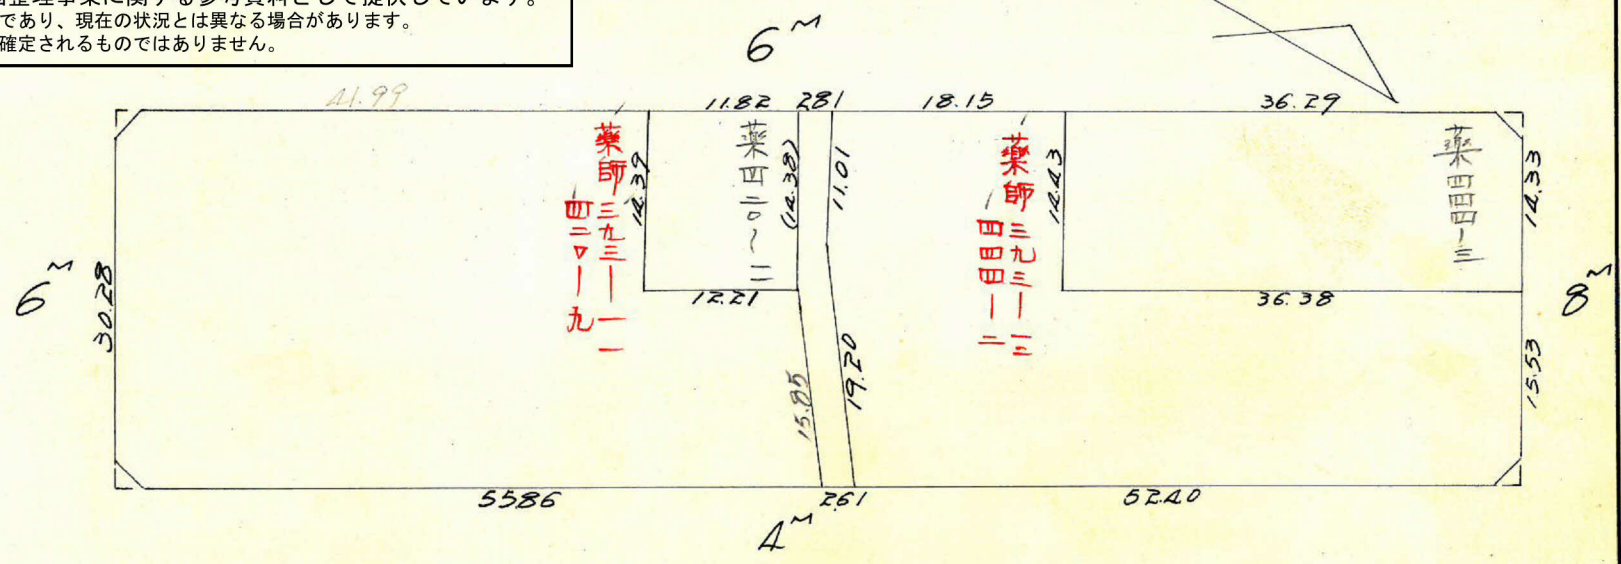 整理事業に関する参考資料として提供しています。
であり、現在の状況とは異なる場合があります。
確定されるものではありません。
6M
41.99
11.82
281
18.15
36.29
薬師
三九三―一一
四二〇―九
14.39
薬四二〇〜二
(14.38)
11.01
薬師
三九三―一二
四四四―二
14.43
薬四四四―三
14.33
6M
30.28
12.21
36.38
8M
15.85
19.20
15.53
5586
261
52.40
4M